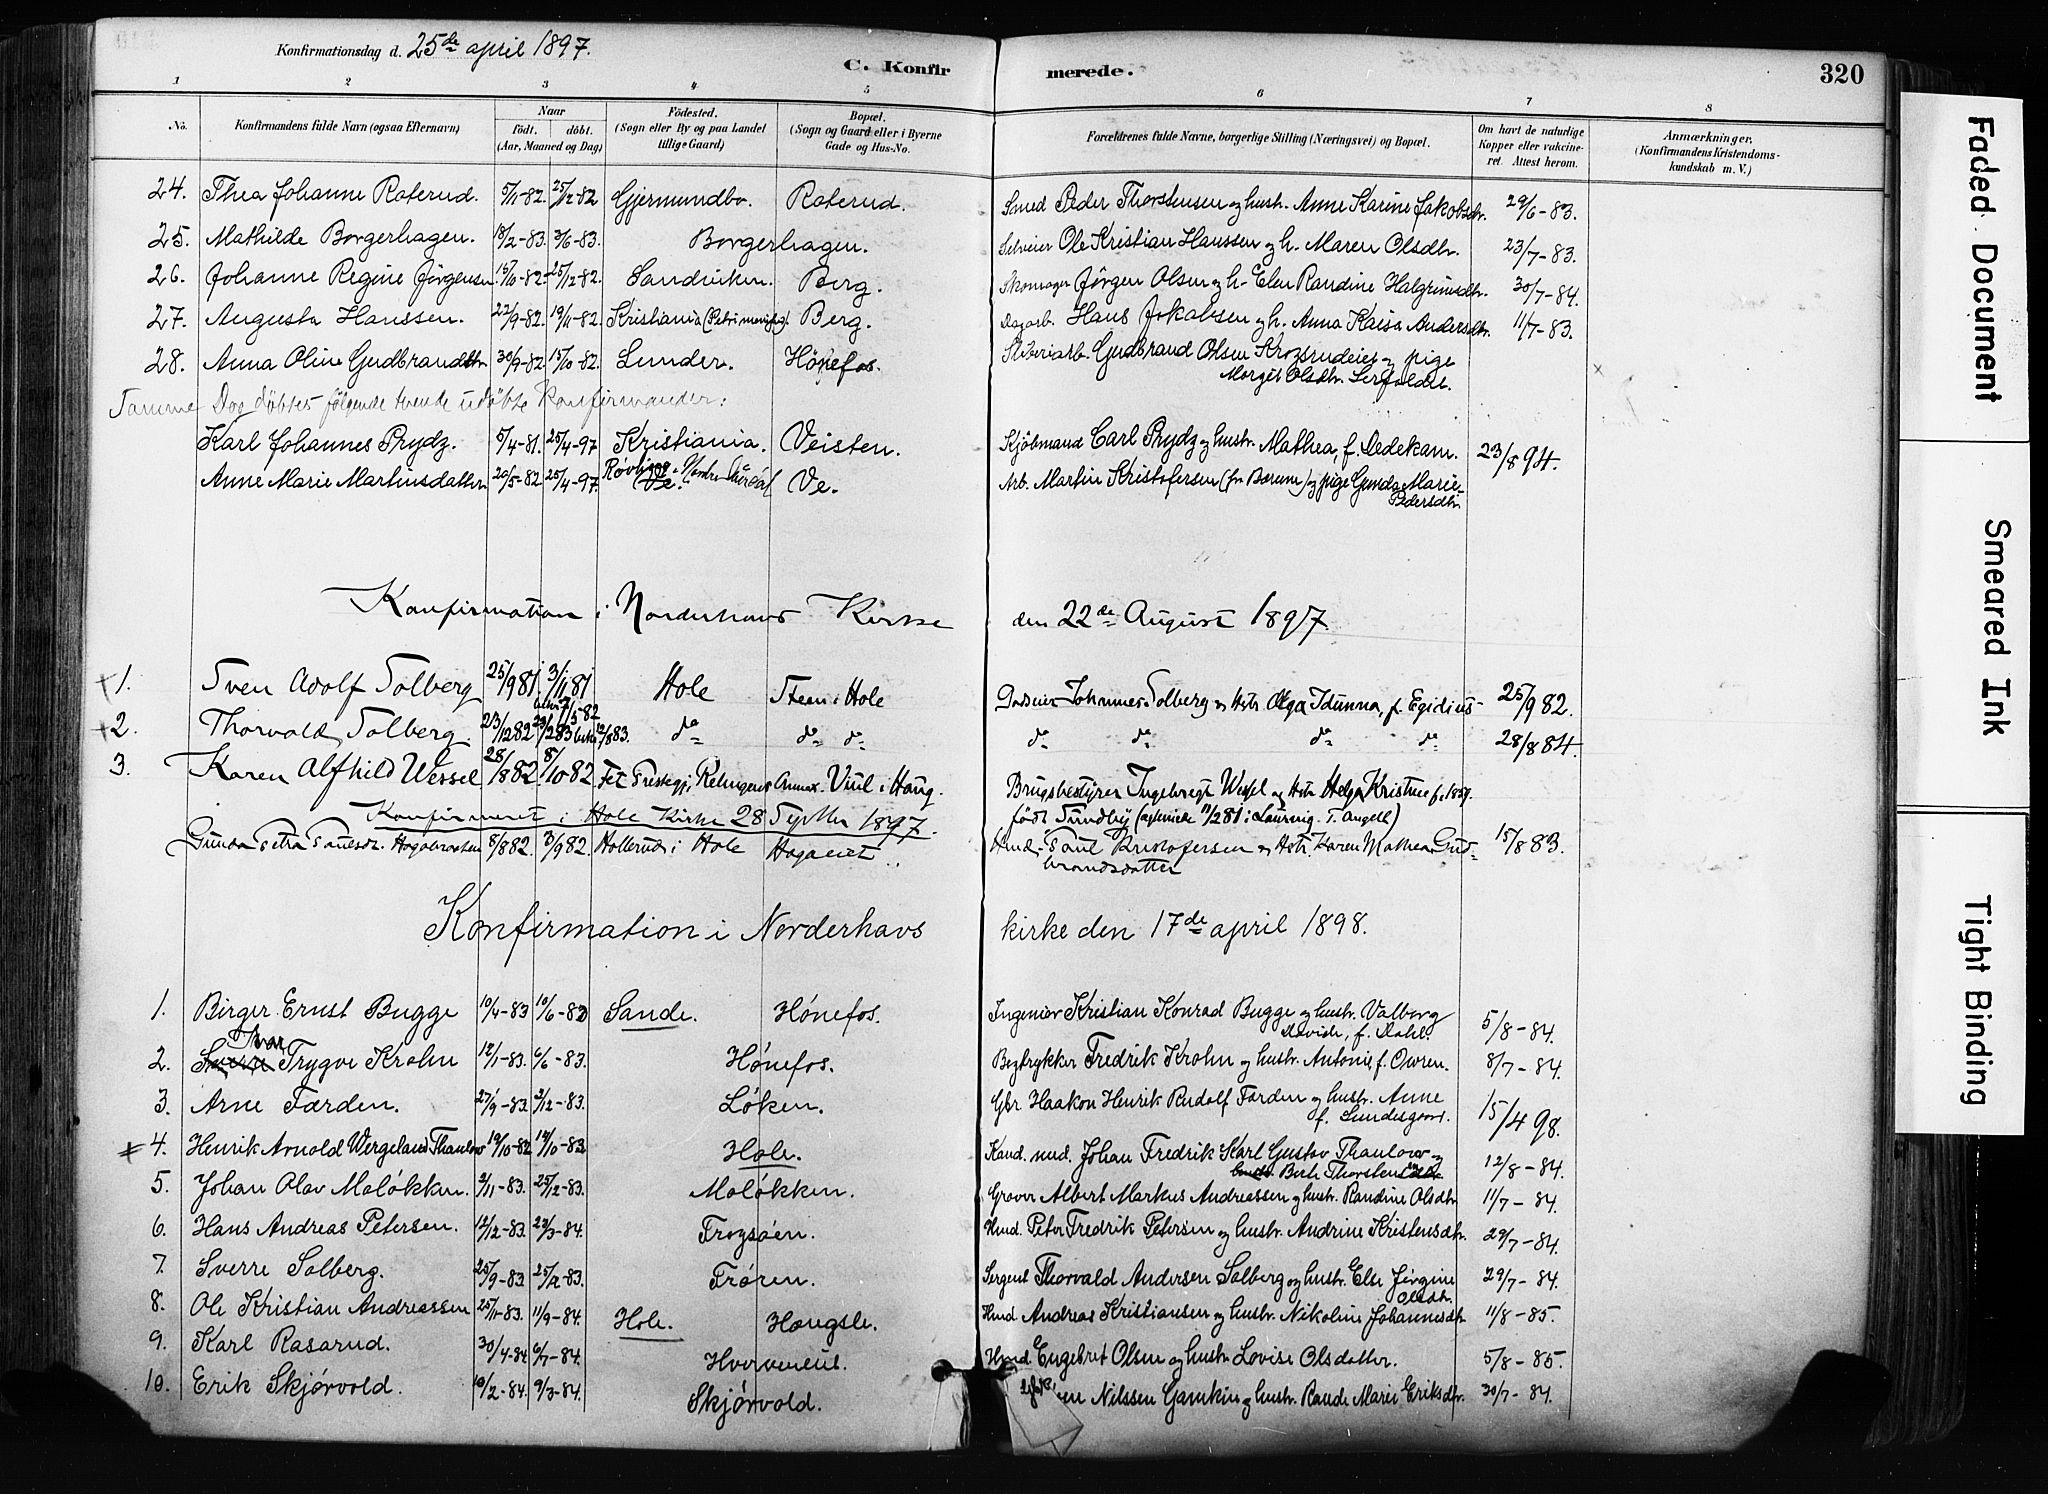 Konfirmationsdag d. 25de april 1897.
C. Konfirmerede.
320
1 2 3 4 5 6 7 8
No. Konfirmandens fulde Navn (ogsaa Efternavn) Naar födt. döbt. (Aar, Maaned og Dag) Födested. (Sogn eller By og paa Landet tillige Gaard) Bopæl. (Sogn og Gaard eller i Byerne Gade og Hus-No. Forældrenes fulde Navne, borgerlige Stilling (Næringsvei) og Bopæl. Om havt de naturlige Kopper eller vakcineret. Attest herom. Anmærkninger. (Konfirmandens Kristendomskundskab m. V.)
24. Thea Johanne Raterud. 5/11-82. 25/12-82 Gjermundbo. Raterud. Smed Peder Thorstensen og hustr. Anne Karine Jakobsdtr. 29/6-83.
25. Mathilde Borgerhagen. 18/2-83. 3/6-83. Borgerhagen. Selveier Ole Kristian Hanssen og h. Maren Olsdtr. 23/7-83.
26. Johanne Regine Jørgensen 15/10-82. 25/12-82. Sandviken. Berg. Skomager Jørgen Olsen og h. Elen Randine Halgrimsdtr. 30/7-84.
27. Augusta Hanssen. 22/9-82. 19/11-82. Kristiania (Petri menighed). Berg. Dagarb. Hans Jakobsen og h. Anna Kaisa Andersdtr. 11/7-83.
28. Anna Oline Gudbrandsdtr 30/9-82. 15/10-82. Lunder. Hønefos. Sliberiarb. Gudbrand Olsen og pige
Marget Olsdtr.
Samme Dag døbtes følgende tvende udøbte Konfirmander:
Karl Johannes Prydz. 5/4-81. 25/4-97 Kristiania. Veisten. Kjøbmand Carl Prydz og hustr. Mathea, f. Dedekam. 23/8 94.
Anne Marie Martinsdatter 20/5-82 25/4-97. Ve. Ve. Arb. Martin Kristofersen (fra Bærum) og pige Gunda Marie Pedersdtr.
Konfirmation i Norderhavs Kirke den 22de August 1897.
1. Sven Adolf Solberg 25/9 81. 3/11 81 Hole Steen i Hole Johannes Solberg og Hstr. Olga Idunna, f. Egidius 25/9 82.
2. Thorvald Solberg. 23/12 82 12/8 83. do do do do do do do 28/8 84.
3. Karen Alfhild Wessel 28/8 82. 8/10-82 Fet Prestegj. Relingens Annex. Viul i Haug. Brugsbestyrer Ingebregt Wessel og Hstr. Helga Kristine f. 1859.
født Sundby
Konfirmeret i Hole Kirke 28 Septbr 1897.
Gunda Petra Paulsdtr. Hagabraaten 8/8 82. 3/9 82. Hollerud i Hole Hagaeiet Hmd. Paul Kristofersen og Hstr. Karen Mathea Gudbrandsdatter 15/8 83.
Konfirmation i Norderhavs kirke den 17de april 1898.
1. Birger Ernst Bugge 10/4-83 10/6-83 Sande. Hønefos. Ingeniør Kristian Konrad Bugge og hustr. Valborg
Davida, f. Dahl. 5/8-84.
2. Sverre Ivar Trygve Krohn 12/1-83. 6/6-83. Hønefos. Bogtrykker Fredrik Krohn og hustr. Antonie, f. Owren. 8/7-84.
3. Arne Farden. 27/9-83. 2/12-83. Løken. Gbr. Haakon Henrik Rudolf Farden og hustr. Anne
f. Lundesgaard. 15/4 98.
4. Henrik Arnold Wergeland Thaulow 19/10-82 14/10-83 Hole. Kand. med. Johan Fredrik Karl Gustav Thaulow og
Berte Thorstensdtr. 12/8-84.
5. Johan Olav Moløkken. 2/11-83. 25/12-83. Moløkken. Graver Albert Markus Andreassen og hustr. Randine Olsdtr. 11/7-84.
6. Hans Andreas Petersen. 12/12-83. 23/3-84. Frogsøen. Hmd. Peter Fredrik Petersen og hustr. Andrine Kristensdtr. 29/7-84.
7. Sverre Solberg. 25/9-83. 25/12-83. Frøren. Sergent Thorvald Andersen Solberg og hustr. Else Jørgine
Olsdtr. 29/7-84.
8. Ole Kristian Andreassen 25/11-83. 11/9-84. Hole. Hougsle. Hmd Andreas Kristiansen og hustr. Nikoline Johannesdtr. 11/8-85.
9. Karl Rasarud. 30/4-84 6/7-84. Hverveneiet. Hmd Engebret Olsen og hustr. Lovise Olsdatter. 5/8-85.
10. Erik Skjørvold. 19/2-84. 9/3-84. Skjørvold. Nilssen og hustr. Rande Marie Eriksdtr. 30/7-84.
Faded Document
Smeared Ink
Tight Binding